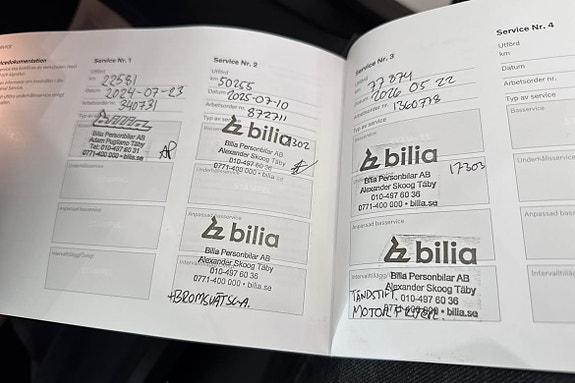 Service Nr. 1
Utförd
km 22581
Datum 2024-07-23
Arbetsorder nr. 340731
Typ av service
Bilia Personbilar AB
Adam Pugliano Täby
Tel: 010-497 60 31
0771-400 000 • bilia.se
Underhållsservice
Anpassad basservice
Intervalltillägg/Övrigt
Service Nr. 2
Utförd
km 50255
Datum 2025-07-10
Arbetsorder nr. 872711
Typ av service
bilia 302
Bilia Personbilar AB
Alexander Skoog Täby
010-497 60 36
0771-400 000 • bilia.se
Underhållsservice
Anpassad basservice
bilia
Bilia Personbilar AB
Alexander Skoog Täby
010-497 60 36
0771-400 000 • bilia.se
+BROMSVÄTSKA.
Service Nr. 3
Utförd
km 77 874
Datum 2026 05 22
Arbetsorder nr. 1360778
Typ av service
bilia
Bilia Personbilar AB
Alexander Skoog Täby 17303
010-497 60 36
0771-400 000 • bilia.se
Anpassad basservice
bilia
Bilia Personbilar AB
Alexander Skoog Täby
Intervalltillägg
010-497 60 36
TÄNDSTIFT.
0771-400 000 • bilia.se
MOTOR
Service Nr. 4
Utförd
km
Datum
Arbetsorder nr.
Typ av service
Basservice
Underhållsservice
Anpassad basservice
Intervalltillägg